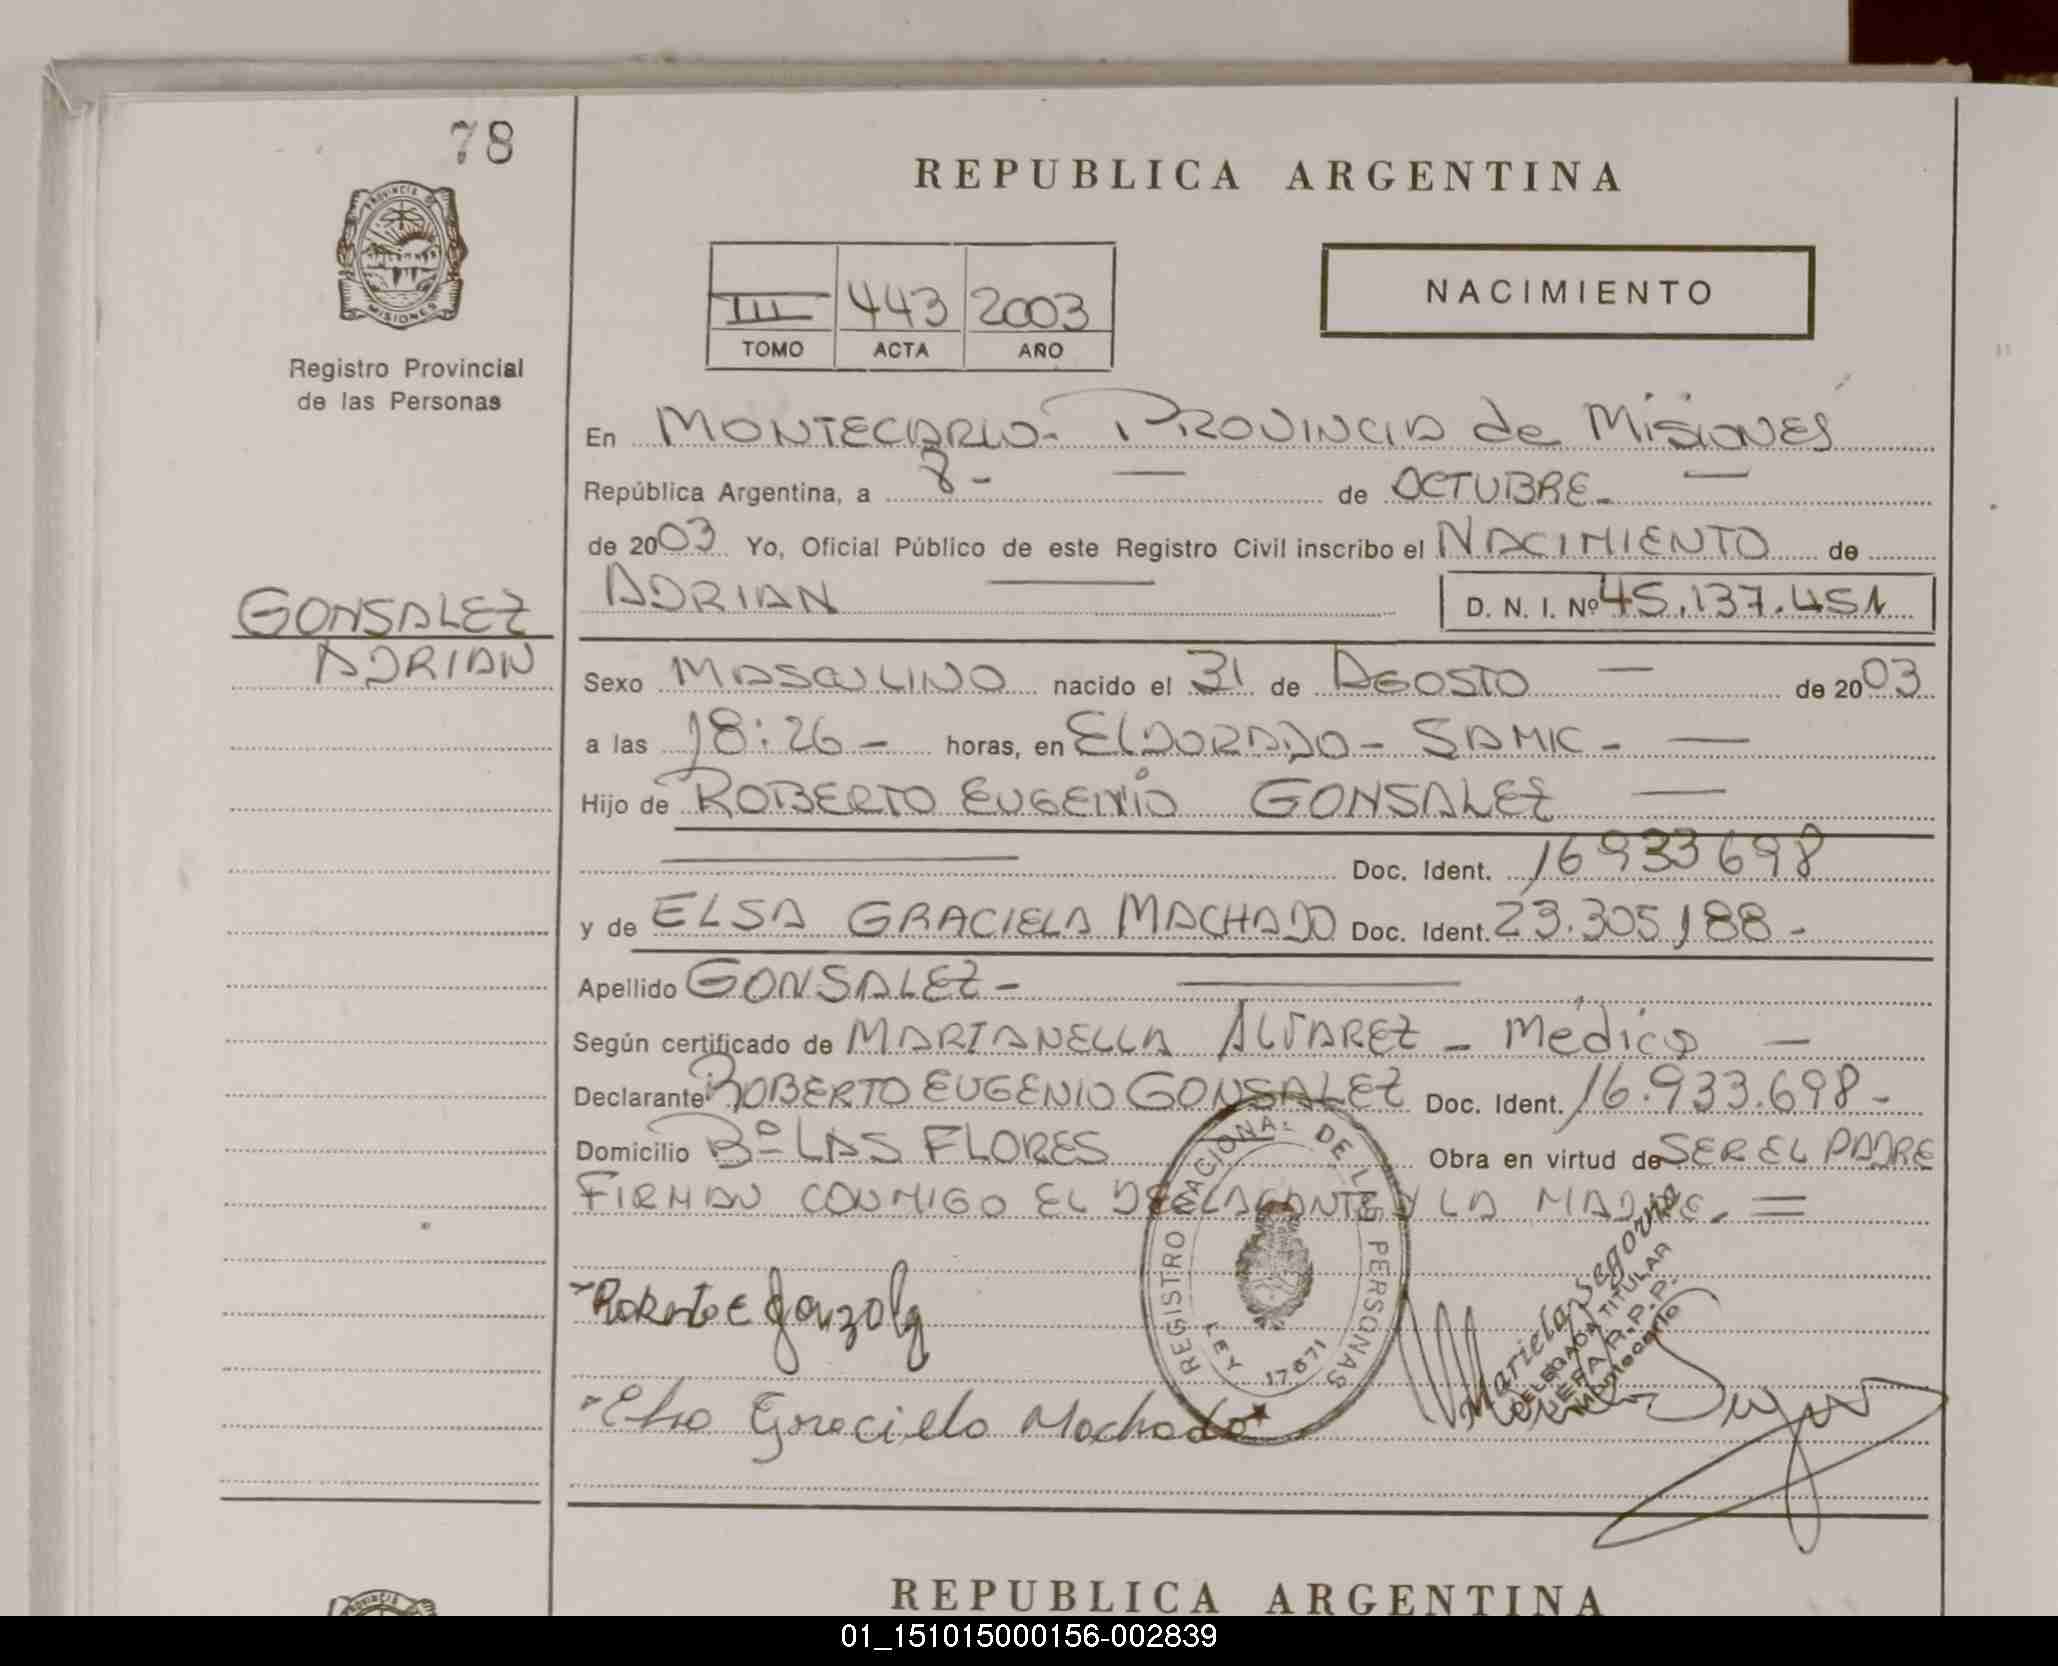 78
PROVINCIA DE
MISIONES
Registro Provincial
de las Personas
GONSALEZ
ADRIAN
REPUBLICA ARGENTINA
III 443 2003
TOMO ACTA AÑO
NACIMIENTO
En MONTECARLO - PROVINCIA de MISIONES
República Argentina, a 8 - — de OCTUBRE - —
de 2003 Yo, Oficial Público de este Registro Civil inscribo el NACIMIENTO de
ADRIAN — D. N. I. Nº 45.137.451
Sexo MASCULINO nacido el 31 de AGOSTO — de 2003
a las 18:26 - horas, en ELDORADO - SAMIC - —
Hijo de ROBERTO EUGENIO GONSALEZ —
— Doc. Ident. 16933698
y de ELSA GRACIELA MACHADO Doc. Ident. 23.305188 -
Apellido GONSALEZ - —
Según certificado de MARIANELLA ALVAREZ - Médico —
Declarante ROBERTO EUGENIO GONSALEZ Doc. Ident. 16.933.698 -
Domicilio Bº LAS FLORES Obra en virtud de SER EL PADRE
FIRMAN CONMIGO EL DECLARANTE Y LA MADRE. =
Roberto E Gonzalez
Elsa Graciela Machado
REGISTRO NACIONAL DE LAS PERSONAS
LEY 17671
Mariela Segovia
DELEGADA TITULAR
R.P.P.
Montecarlo
REPUBLICA ARGENTINA
PROVINCIA
01_151015000156-002839